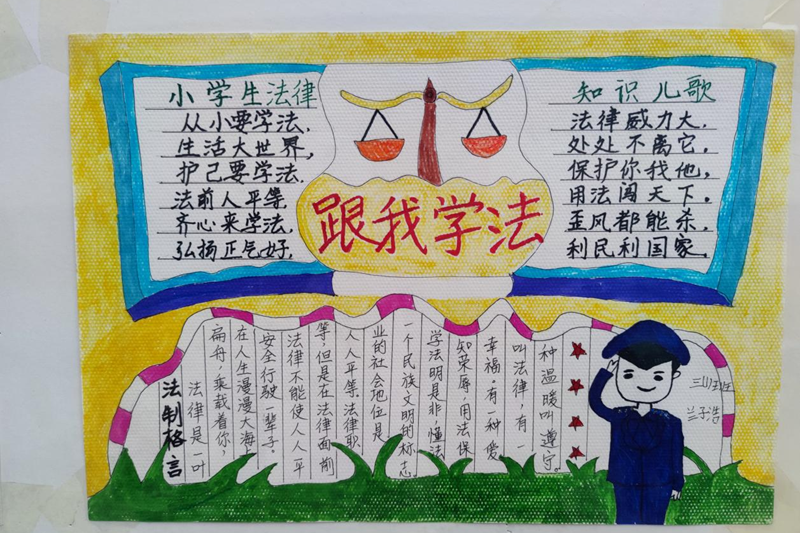 小学生法律
从小要学法,
生活大世界,
护己要学法.
法前人平等.
齐心来学法,
弘扬正气好,
跟我学法
知识儿歌
法律威力大,
处处不离它,
保护你我他,
用法闯天下。
歪风都能杀,
利民利国家,
法制格言
法律是一叶
扁舟,乘载着你,
在人生漫漫大海上
安全行驶一辈子。
法律不能使人人平
等,但是在法律面前
人人平等。法律职
业的社会地位是
一个民族文明的标志。
学法明是非,懂法
知荣辱,用法保
幸福。有一种爱
叫法律,有一
种温暖叫遵守。
三(1)班
兰子浩